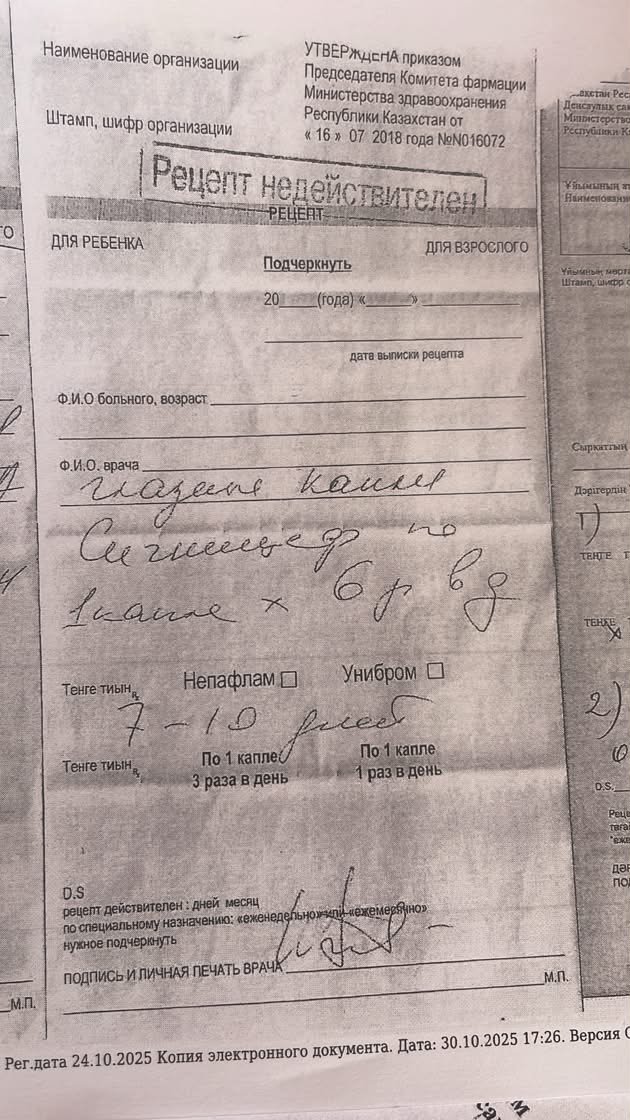 Наименование организации
УТВЕРЖДЕНА приказом
Председателя Комитета фармации
Министерства здравоохранения
Республики Казахстан от
« 16 » 07 2018 года №N016072
Штамп, шифр организации
Рецепт недействителен
РЕЦЕПТ
ДЛЯ РЕБЕНКА ДЛЯ ВЗРОСЛОГО
Подчеркнуть
20____(года) «_____» __________
дата выписки рецепта
Ф.И.О больного, возраст
Ф.И.О. врача
глазные капли
Сигницеф по
1 капле x 6 р в д
Тенге тиын Rx Непафлам □ Унибром □
7 - 10 дней
Тенге тиын Rx По 1 капле 3 раза в день По 1 капле 1 раз в день
D.S
рецепт действителен : дней месяц
по специальному назначению: «еженедельно» или «ежемесячно»
нужное подчеркнуть
ПОДПИСЬ И ЛИЧНАЯ ПЕЧАТЬ ВРАЧА
М.П.
М.П.
Министерство
Республики
Наименование
Штамп, шифр
Сырқаттың
Дәрігердің
1)
ТЕҢГЕ
ТЕҢГЕ
2)
D.S.
Рег.дата 24.10.2025 Копия электронного документа. Дата: 30.10.2025 17:26. Версия